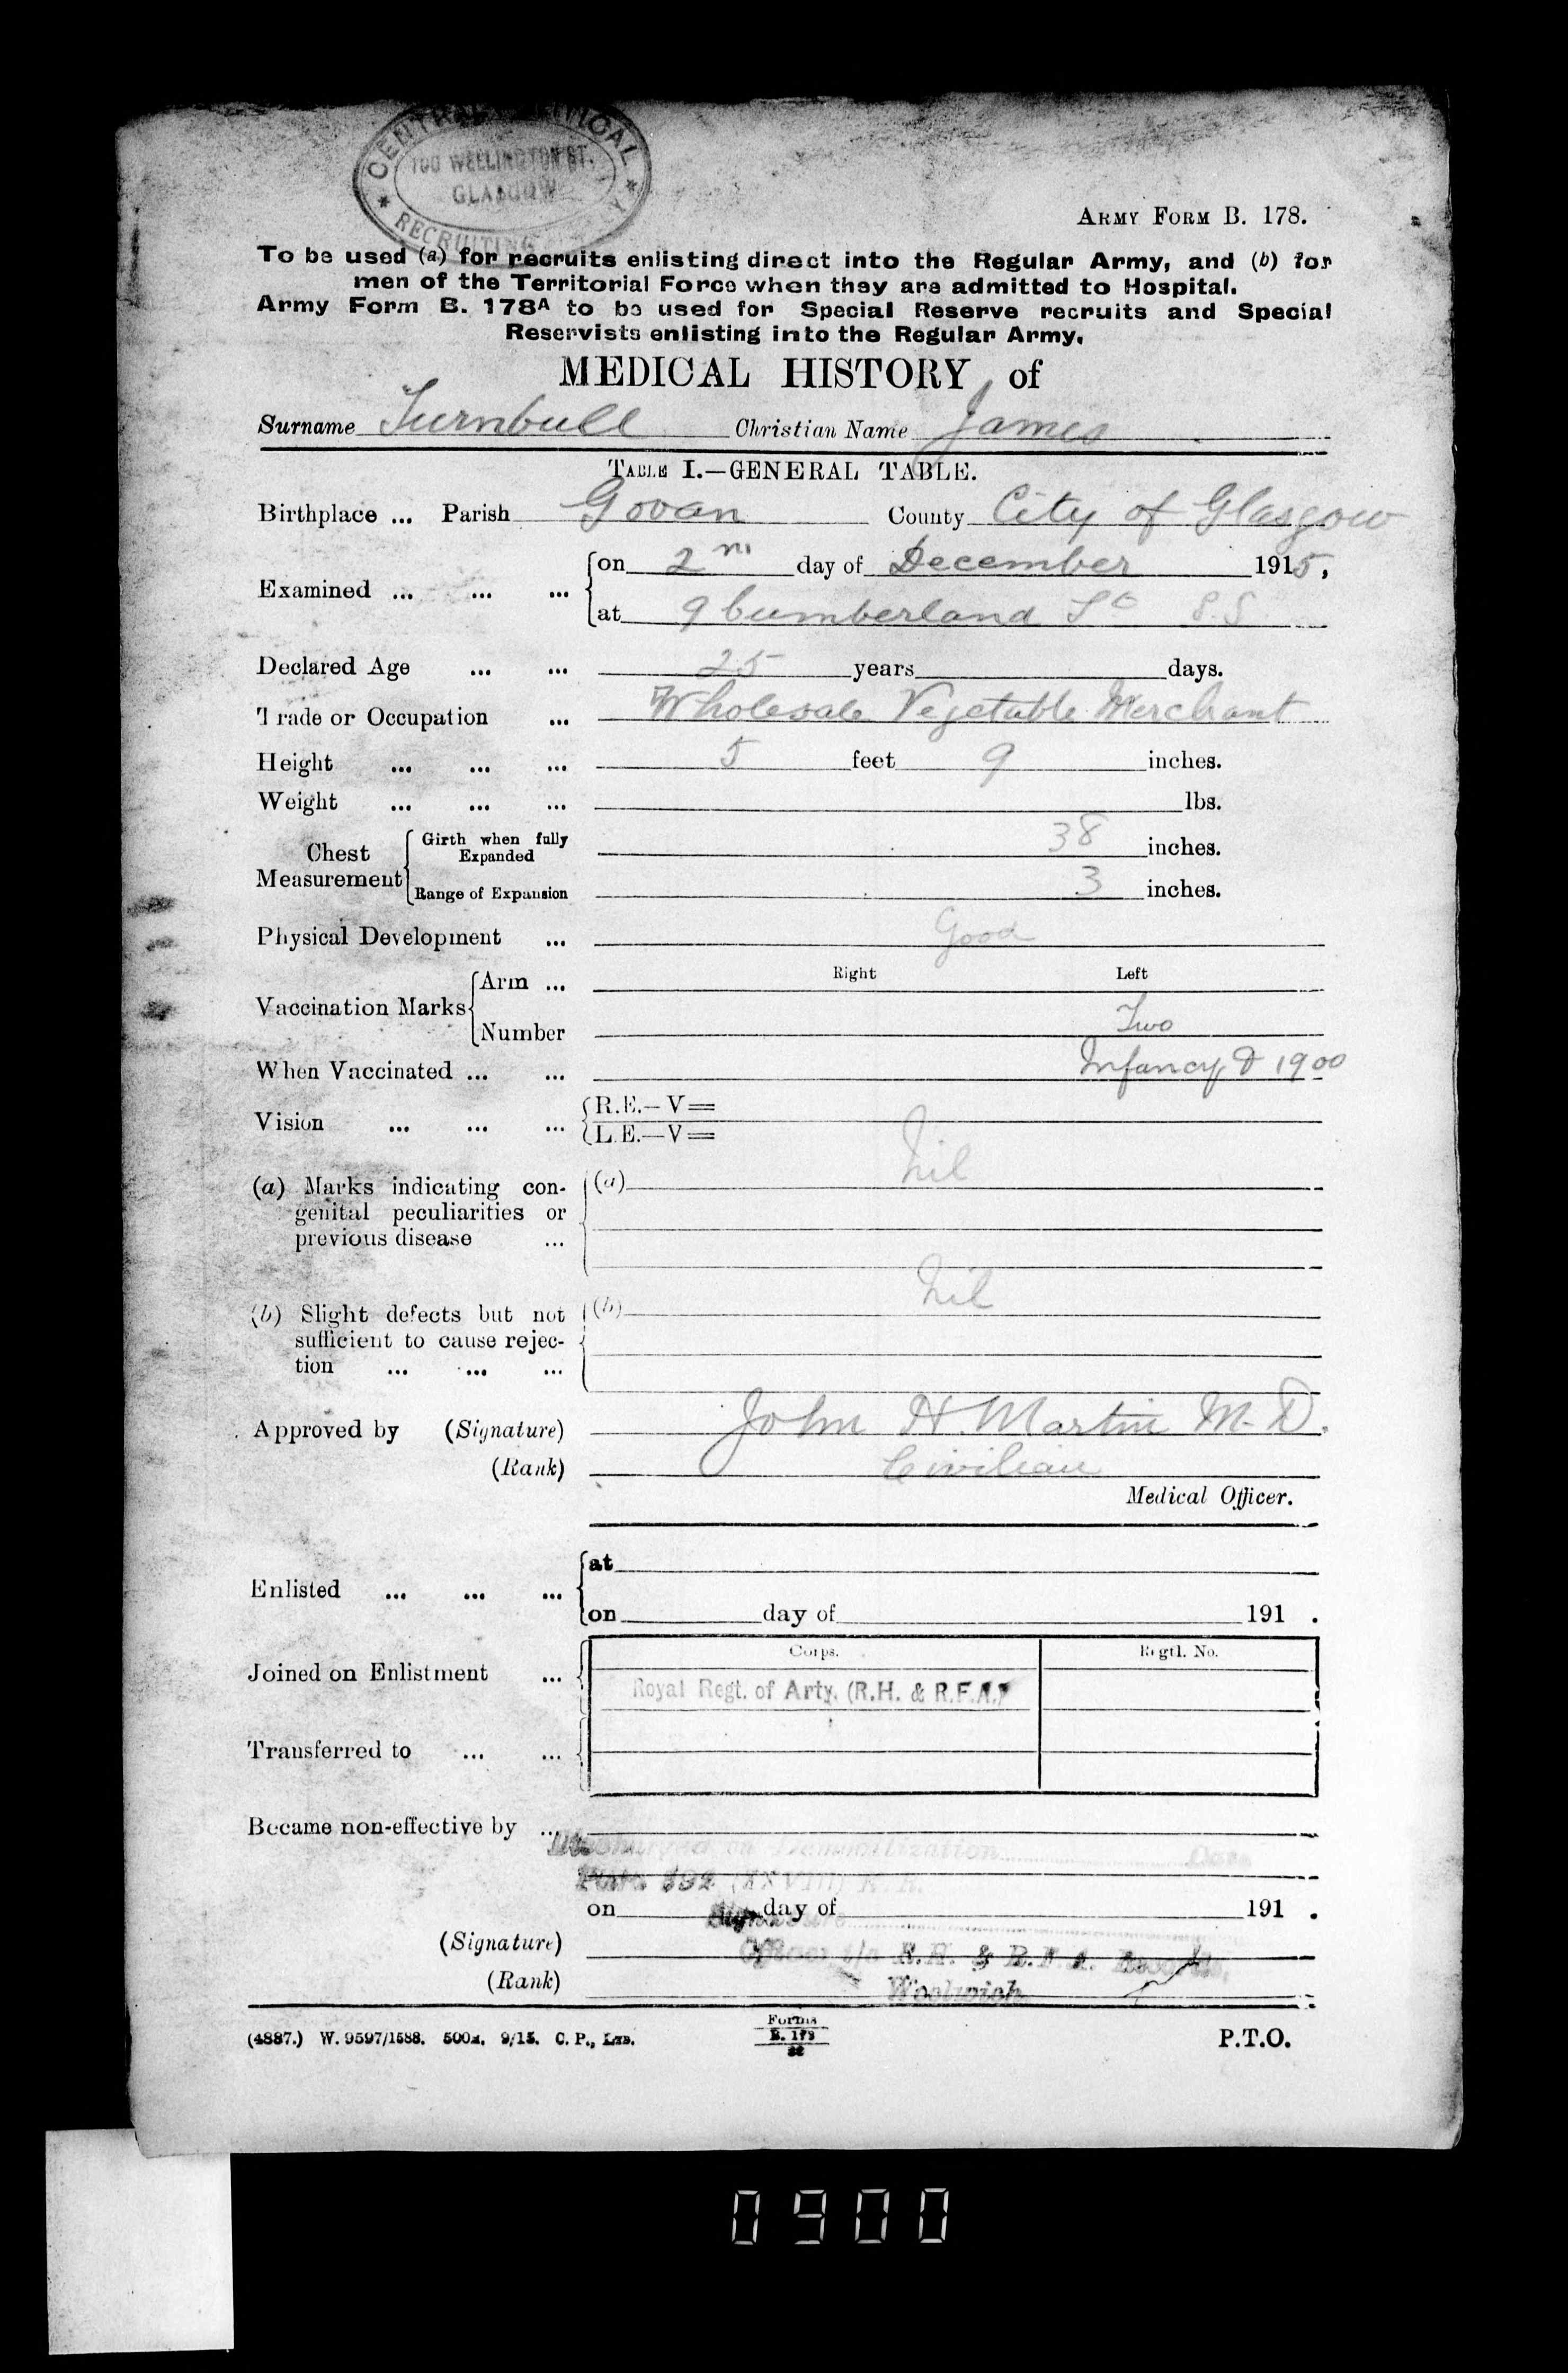 CENTRAL
100 WELLINGTON ST.
GLASGOW
RECRUITING
ARMY FORM B. 178.
To be used (a) for recruits enlisting direct into the Regular Army, and (b) for
men of the Territorial Force when they are admitted to Hospital.
Army Form B. 178A to be used for Special Reserve recruits and Special
Reservists enlisting into the Regular Army.
MEDICAL HISTORY of
Surname Turnbull Christian Name James
TABLE I.—GENERAL TABLE.
Birthplace ... Parish Govan County City of Glasgow
Examined ... ... ... on 2nd day of December 1915,
at 9 Cumberland St S.S
Declared Age ... ... 25 years days.
Trade or Occupation ... Wholesale Vegetable Merchant
Height ... ... ... 5 feet 9 inches.
Weight ... ... ... lbs.
Chest Measurement Girth when fully Expanded 38 inches.
Range of Expansion 3 inches.
Physical Development ... Good
Right Left
Vaccination Marks Arm ...
Number Two
When Vaccinated ... ... Infancy & 1900
Vision ... ... ... R.E.—V=
L.E.—V=
(a) Marks indicating con- (a) Nil
genital peculiarities or
previous disease ...
(b) Slight defects but not (b) Nil
sufficient to cause rejec-
tion ... ... ...
Approved by (Signature) John H. Martin M.D.
(Rank) Civilian
Medical Officer.
Enlisted ... ... ... at
on day of 191 .
Corps. Regtl. No.
Joined on Enlistment ... Royal Regt. of Arty. (R.H. & R.F.A.)
Transferred to ... ...
Became non-effective by ...
Discharged on Demobilization Date
Para 392 (XXVIII) K.R.
on day of 191 .
Signature
(Signature) Officer i/c R.H. & R.F.A. Records,
(Rank) Woolwich
(4887.) W. 9597/1588. 500M. 9/15. C. P., LTD. Forms B. 178 P.T.O.
0900